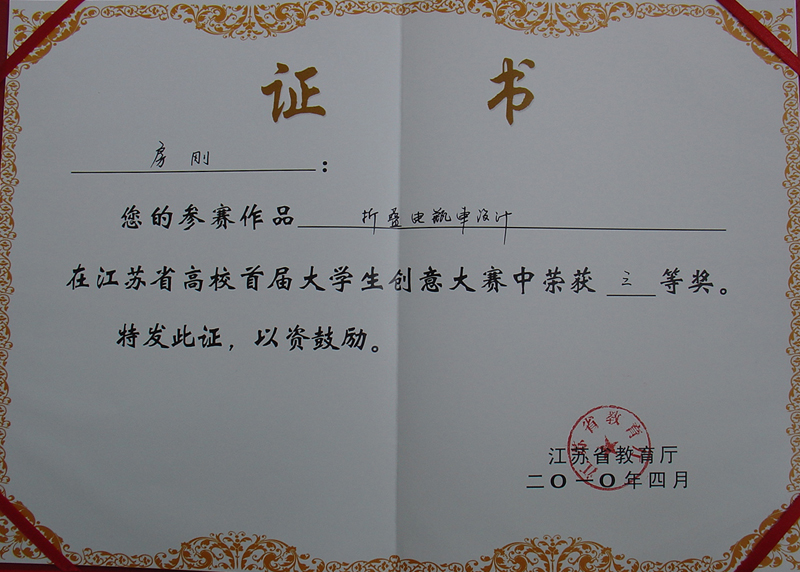 证 书
房刚：
您的参赛作品 折叠电瓶车设计
在江苏省高校首届大学生创意大赛中荣获 三 等奖。
特发此证，以资鼓励。
江苏省教育厅
江苏省教育厅
二〇一〇年四月